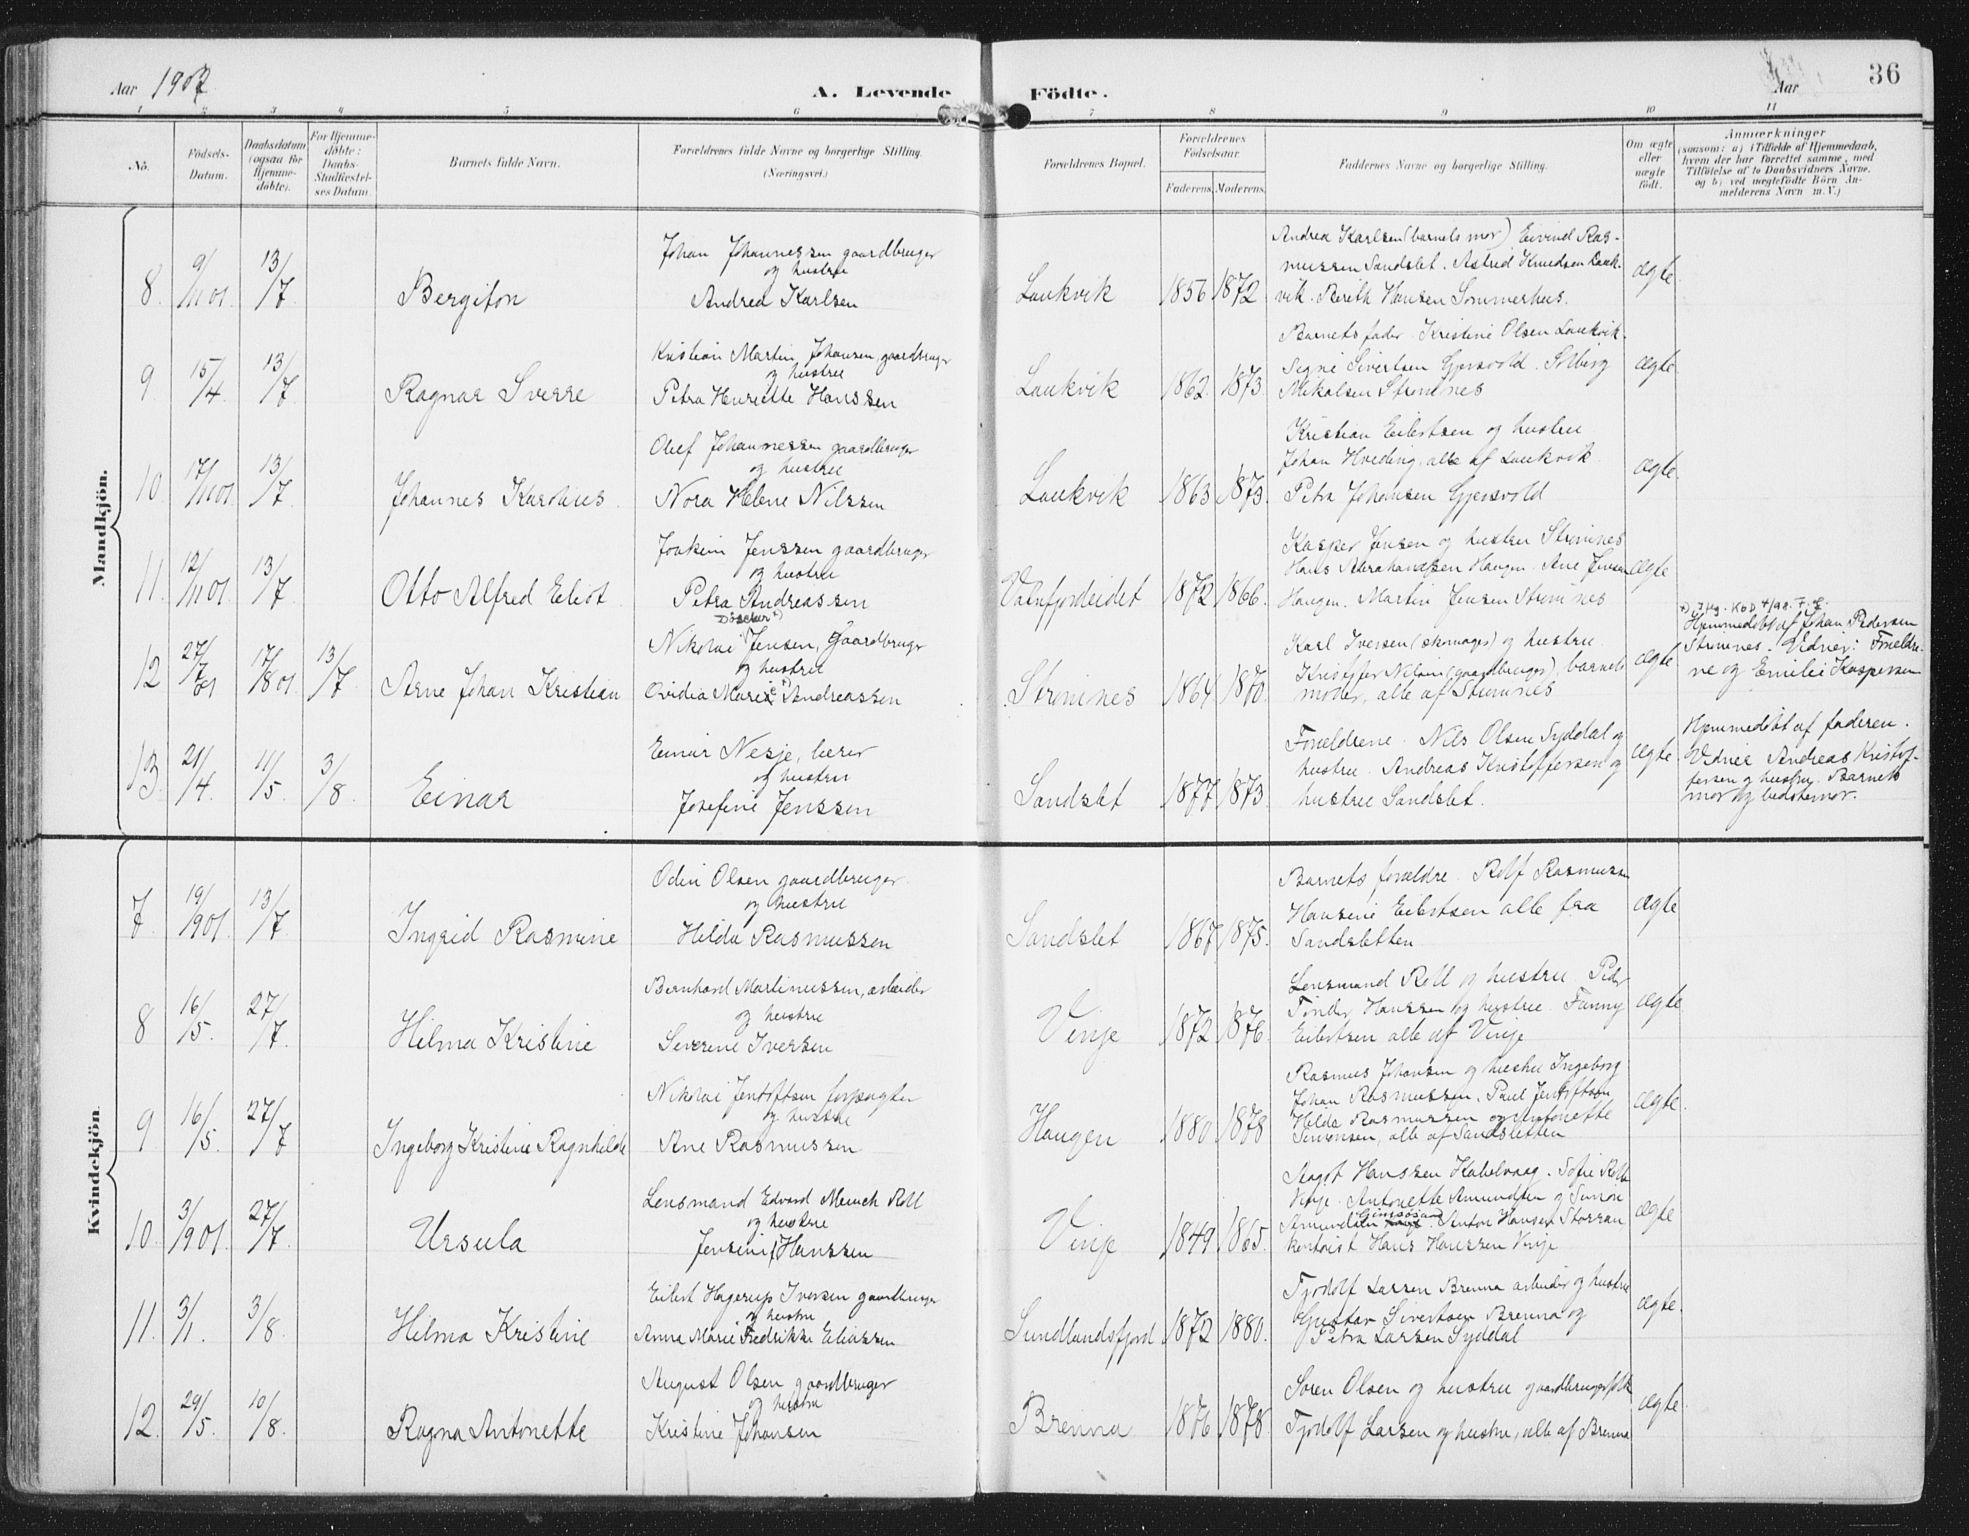 Aar 1902
A. Levende
Födte.
Aar
36
1 2 3 4 5 6 7 8 9 10 11
No.
Födsels-Datum.
Daabsdatum (ogsaa for Hjemmedöbte).
For Hjemmedöbte: Daabs-Stadfæstelses Datum.
Barnets fulde Navn.
Forældrenes fulde Navne og borgerlige Stilling.
(Næringsvei.)
Forældrenes Bopæl.
Forældrenes Födselsaar.
Faderens. Moderens.
Faddernes Navne og borgerlige Stilling.
Om ægte eller uægte födt.
Anmærkninger
(saasom: a) i Tilfælde af Hjemmedaab,
hvem der har forrettet samme, med
Tilföielse af to Daabsvidners Navne,
og b) ved uægtefödte Börn An-
melderens Navn m. V.)
Mandkjön.
8. 9/11 01. 13/7 Bergiton
Johan Johannessen gaardbruger
og hustru
Andrea Karlsen
Laukvik 1856 1872
Andrea Karlsen (barnets mor) Eivind Ras-
mussen Sandslet. Astrid Knudsen Lauk-
vik. Berith Hansen Sommerhus.
Ægte
9. 15/4. 13/7. Ragnar Sverre
Kristian Martin Johansen, gaardbruger
og hustru
Petra Henriette Hanssen
Laukvik 1862. 1873.
Barnets fader. Kristine Olsen Laukvik.
Signe Sivertsen Gjersvold. Solberg
Mikalsen Strømnes
Ægte
10. 17/11 01. 13/7. Johannes Karolius.
Oluf Johannessen gaardbruger
og hustru
Nora Helene Nilssen
Laukvik 1863 1873.
Kristian Eilertsen og hustru
Johan Hveding, alle af Laukvik.
Petra Johansen Gjersvold
Ægte
11. 12/11 01. 13/7. Otto Alfred Eliot.
Joakim Jenssen gaardbruger
og hustru
Petra Andreassen
Vatnfjordeidet 1872 1866.
Kasper Jensen og hustru Strømnes
Hans Abrahamssen Haugen. Ane Jensen
Haugen. Martin Jensen Strømnes
Ægte
12 27/7 01 17/8 01. 13/7 Arne Johan Kristian
Nikolai Jensen, Gaardbruger
og hustru
Ovidia Marie Andreassen
Strømnes 1864 1870.
Karl Iversen (skomager) og hustru
Kristoffer Nilsen (gaardbruger), barnets
moder, alle af Strømnes
Ægte
Hjemmedöbt af Johan Pedersen
Strømnes. Vidner: Foreldre-
ne og Emilie Kaspersen
13. 21/4. 11/5. 3/8. Einar
Einar Nesje, lærer
og hustru
Josefine Jenssen
Sandslet 1877 1873
Foreldrene. Nils Olsen Syddal og
hustru. Andreas Kristoffersen og
hustru Sandslet.
Ægte.
Hjemmedöbt af faderen.
Vidner Andreas Kristof-
fersen og hustru. Barnets
mor og bedstemor.
Kvindekjön.
7. 19/9 01. 13/7 Ingrid Rasmine
Odin Olsen gaardbruger.
og hustru
Hilda Rasmussen
Sandslet 1867 1875.
Barnets forældre. Rolf Rasmussen
Hansine Eilertsen alle fra
Sandsletten
Ægte
8 16/5. 27/7. Hilma Kristine
Bernhard Martinussen, arbeider
og hustru
Severine Iversen
Vinje 1872 1876.
Lensmand Roll og hustru. Peder
Tønder Hanssen og hustru. Fanny
Eilertsen alle af Vinje
Ægte
9 16/5. 27/7 Ingeborg Kristine Ragnhilde
Nikolai Jentoftsen forpagter
og hustru
Ane Rasmussen
Haugen 1880 1878
Rasmus Johansen og hustru Ingeborg
Johan Rasmussen. Paul Jentoftsen
Hilda Rasmussen og Antonette
Simonsen, alle af Sandsletten
Ægte.
10. 3/9 01. 27/7. Ursula
Lensmand Edvard Munch Roll
og hustru
Jensine Hanssen
Vinje 1849 1865.
Aagot Hanssen Kabelvaag. Sofie Roll
Vinje. Antonette Amundsen og Simon
Amundsen Gimsøsand. Anton Hansen Storran,
kontorist Hans Hanssen Vinje
Ægte
11. 3/1. 3/8. Hilma Kristine
Eilert Hagerup Iversen gaardbruger
og hustru
Anna Marie Fredrikke Eliassen
Sundlandsfjord 1872 1880.
Tjodolf Larsen Brenna arbeider og hustru
Gustav Sivertsen Brenna og
Petra Larsen Syddal
Ægte.
12. 29/5. 10/8. Ragna Antonette
August Olsen gaardbruger
og hustru
Kristine Johansen
Brenna 1876 1878.
Søren Olsen og hustru gaardbrugerfolk
Tjodolf Larsen og hustru, alle af Brenna
Ægte.